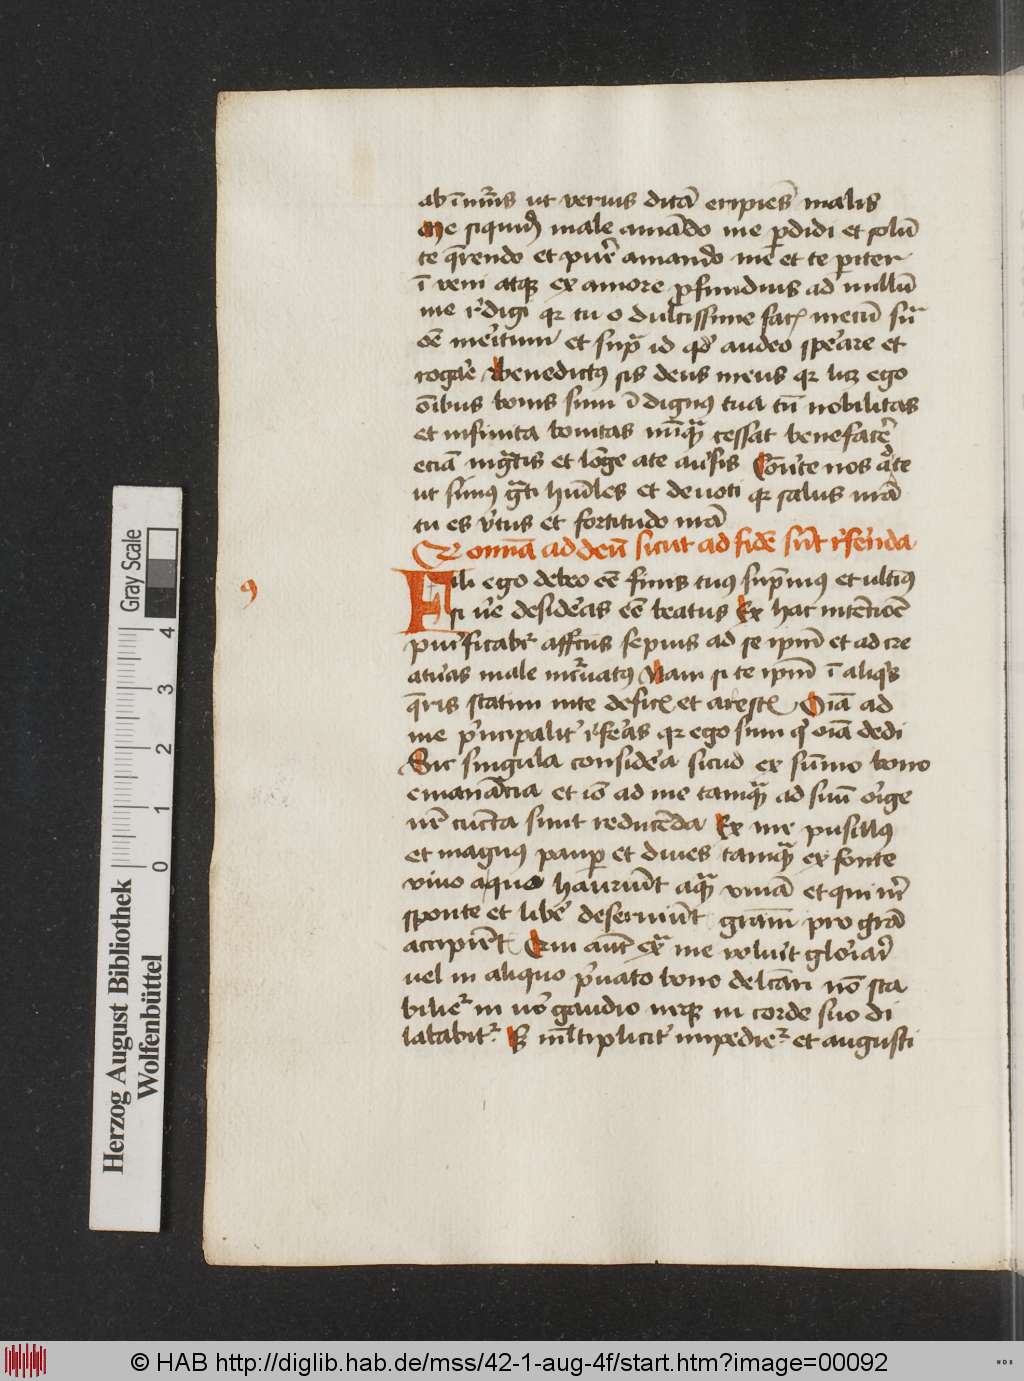 ab īnūis ut verius dicā eripiēs malis
Me siquid̄ male amādo me ꝑdidi et solū
te q̄rendo et pure amando me et te pariter
ī veni atqꝫ ex amore ꝓfundius ad nullū
me redigi qr tu o dulcissime facꝭ mecū sup̄
oē meritum et sup̄ id qd̓ audeo sperare et
rogare Benedictꝰ sis deus meus qr licꝫ ego
oībus bonis sum ī dignꝰ tua tn̄ nobilitas
et infinita bonitas nūqᷓ cessat benefacē
eciā ingᷓtis et lōge a te auersis Cōuerte nos a᷒ te
ut simꝰ gᷓti hūiles et devoti qr salus nrā
tu es v̓tus et fortitudo nrā
Q omīa ad deū sicut ad finē sūt referenda
Fili ego debeo eē finis tuꝰ sup̄mꝰ et ultimꝰ
si vere desideras eē beatus Ex hac intēcioē
purificabit᷑ affcūs sepius ad se ipm̄ et ad cre
aturas male incuruatꝰ Nam si te ipm̄ ī aliqͦ
q̄ris statim in te deficꝭ et arescꝭ Oīa ad
me p̓ncipalit̓ referas qr ego sum q̓ oīa dedi
Sic singula considera sicud ex sūmo bono
emanācia et iō ad me tamqᷓ ad suū orige
nē cuncta sunt reducēda Ex me pusillꝰ
et magnꝰ paup̱ et dives tamqᷓ ex fonte
vivo aqua hauriūt aqᷓ vivā et qui m̄
sponte et libere deserviūt grām̄ pro grā
accipiēt Qui aut̄ exᷓ me voluit gloriari
vel in aliquo p̓vato bono delcāri nō sta
biliet᷑ in vero gaudio neqꝫ in corde suo di
latabit᷑ S̄ ml̄tiplicit̓ impediet᷑ et augusti
9
Herzog August Bibliothek
Wolfenbüttel
Gray Scale
0 1 2 3 4
© HAB http://diglib.hab.de/mss/42-1-aug-4f/start.htm?image=00092